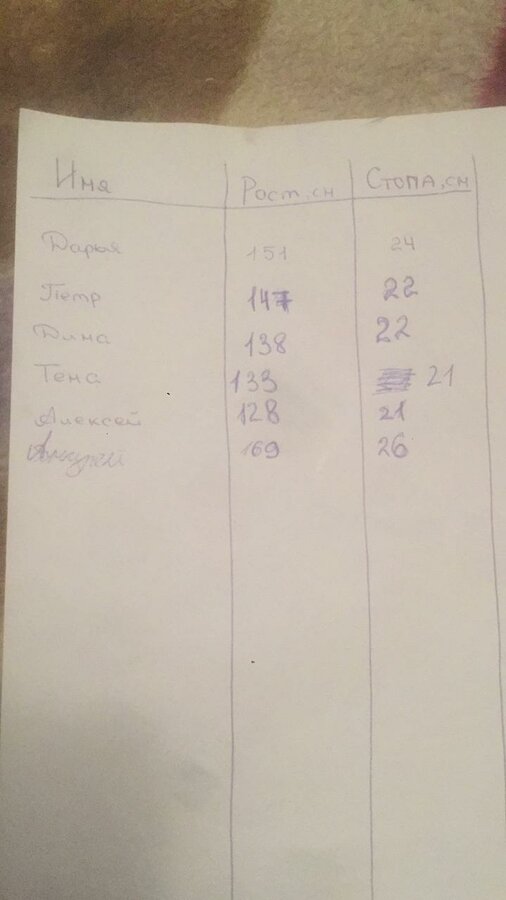 Имя Рост, см Стопа, см
Дарья 151 24
Петр 147 22
Дина 138 22
Тена 133 21
Алексей 128 21
169 26